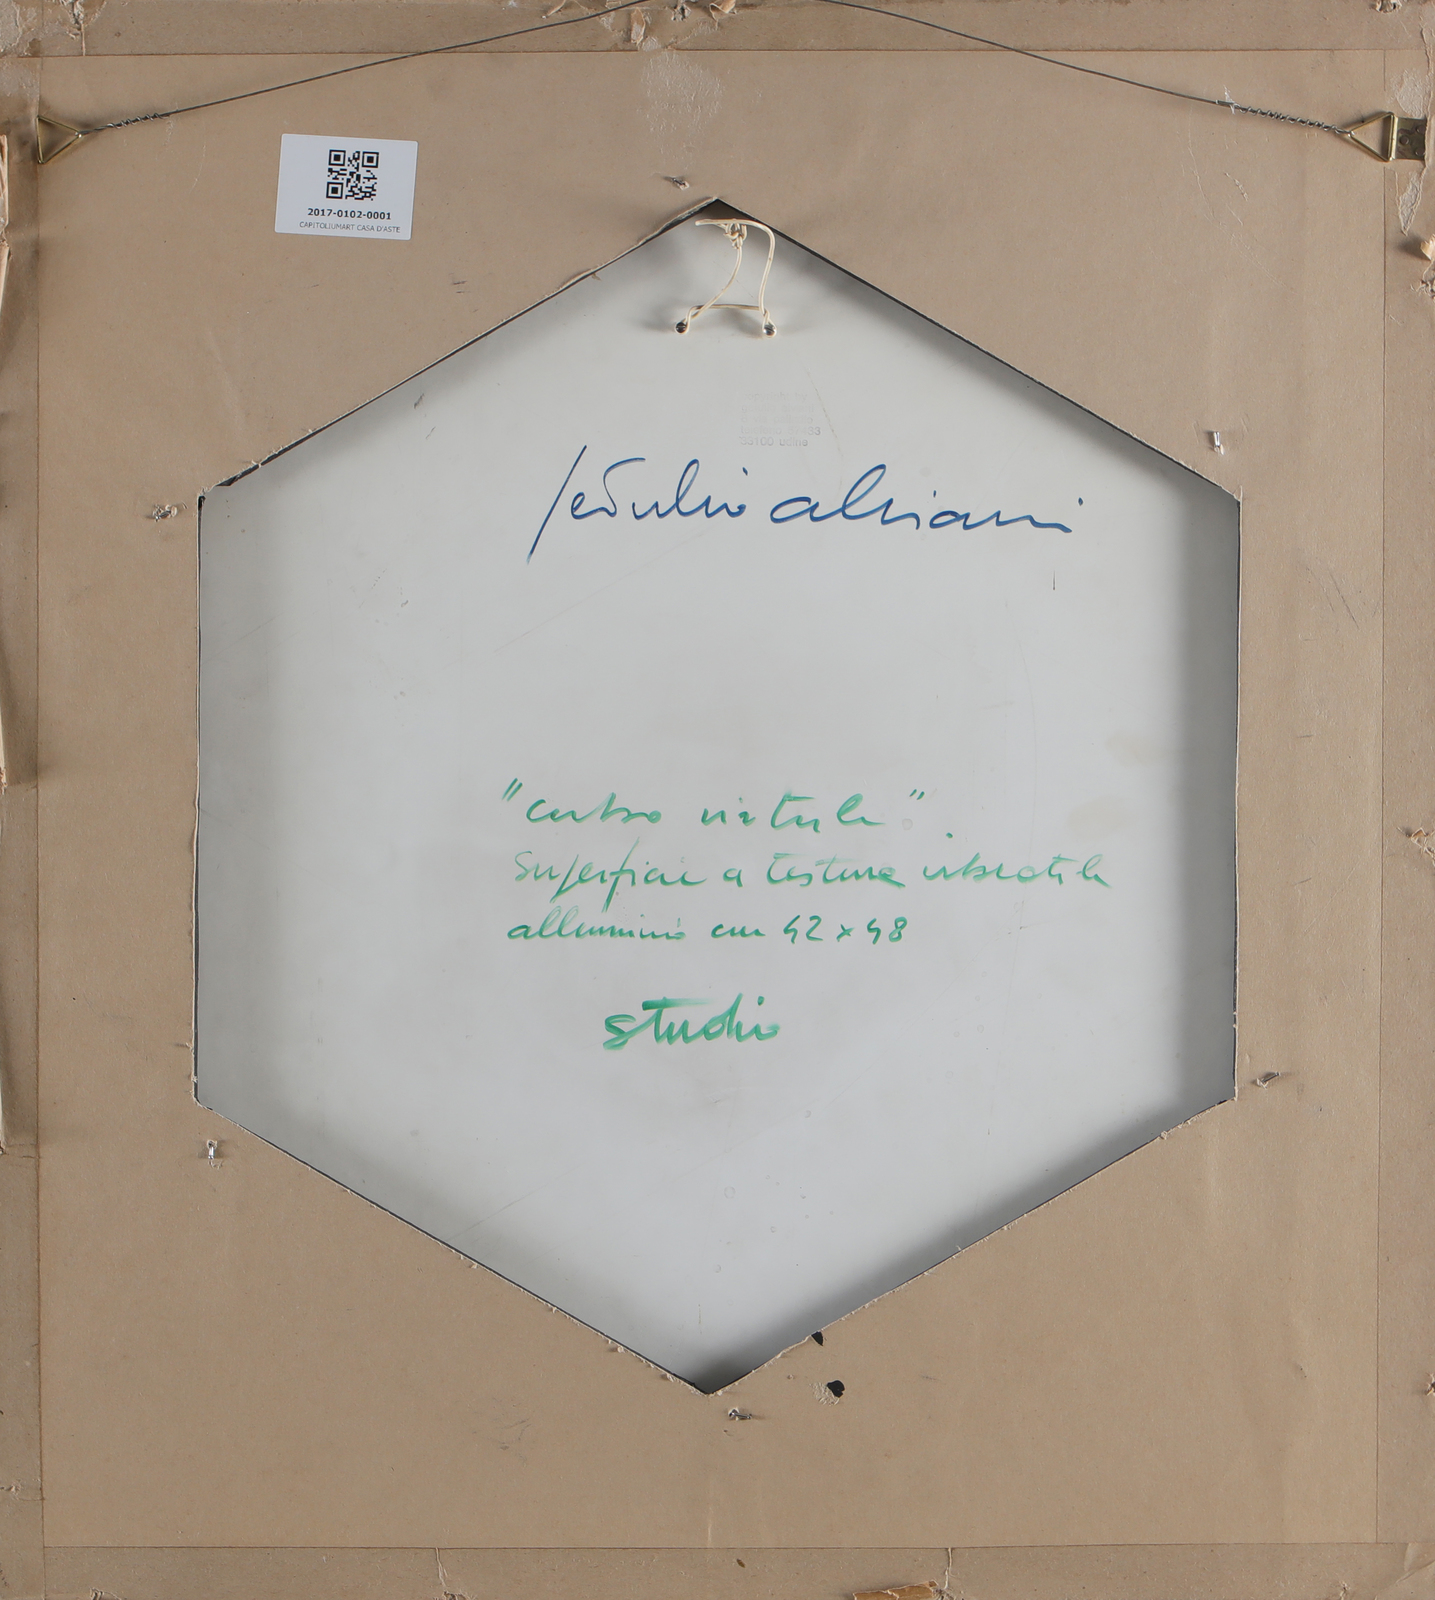 2017-0102-0001
CAPITOLIUMART CASA D'ASTE
33100 udine
getulio alviani
"cubo virtuale".
Superficie a testura vibratile
alluminio cm 42 x 48
studio